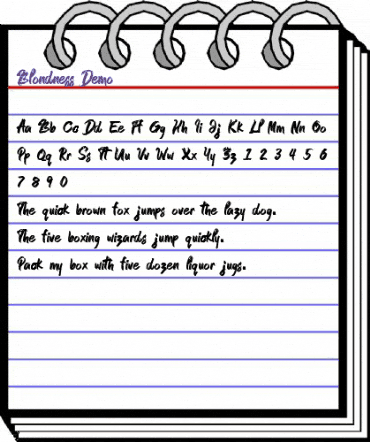 Blondness Demo
Aa Bb Cc Dd Ee Ff Gg Hh Ii Jj Kk Ll Mm Nn Oo
Pp Qq Rr Ss Tt Uu Vv Ww Xx Yy Zz 1 2 3 4 5 6
7 8 9 0
The quick brown fox jumps over the lazy dog.
The five boxing wizards jump quickly.
Pack my box with five dozen liquor jugs.